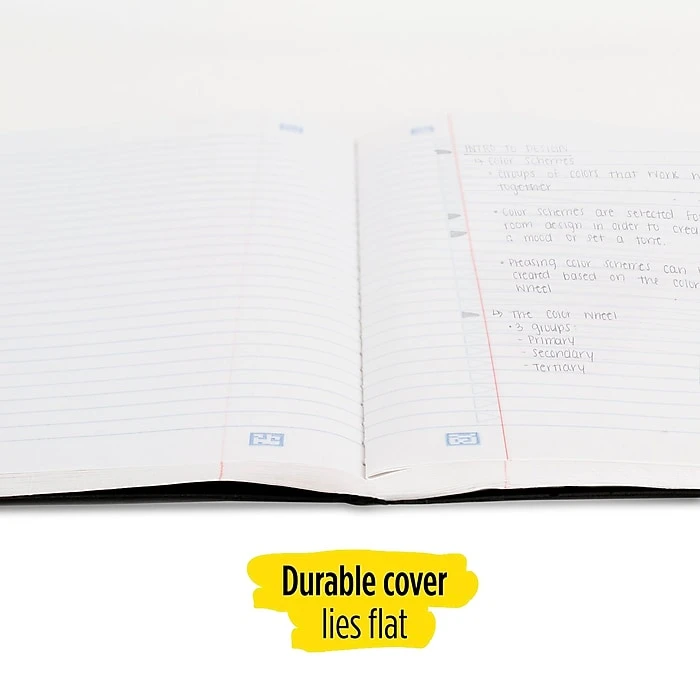 INTRO TO DESIGN
↳ Color Schemes
• Groups of colors that work
together
• Color schemes are selected
room design in order to
a mood or set a tone.
• Pleasing color schemes can
created based on the color
wheel
↳ The color wheel
• 3 groups:
- Primary
- Secondary
- Tertiary
Durable cover
lies flat